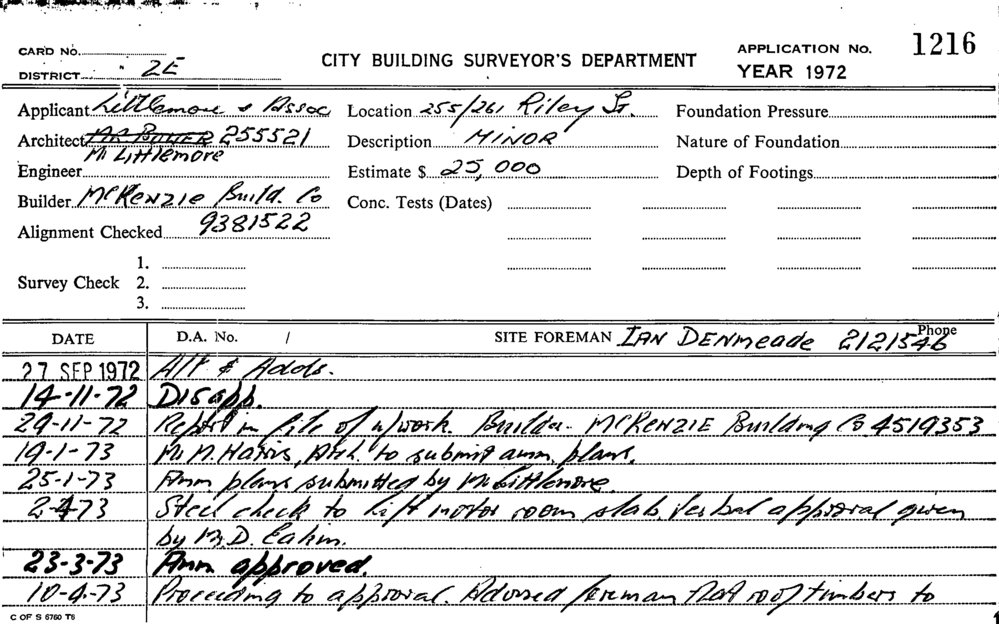 CARD NO. APPLICATION No. 1216
DISTRICT 2E CITY BUILDING SURVEYOR'S DEPARTMENT YEAR 1972
Applicant Littlemore & Assoc Location 255/261 Riley St. Foundation Pressure
Architect 255521 Description MINOR Nature of Foundation
Mr Littlemore
Engineer Estimate $ 25,000 Depth of Footings
Builder McKenzie Build. Co Conc. Tests (Dates)
Alignment Checked 9381522
1.
Survey Check 2.
3.
DATE D.A. No. / SITE FOREMAN IAN DENMEADE Phone 2121546
27 SEP 1972 Alt & Adds.
14-11-72 Disapp.
29-11-72 Report in file of u/work. Builder- McKENZIE Building Co 4519353
19-1-73 Mr M. Harris, Arch. to submit amm. plans.
25-1-73 Amm plans submitted by Mr Littlemore.
Steel check to lift motor room slab. Verbal approval given
by Mr D.
23-3-73 Amm approved.
10-4-73 Proceeding to approval. Advised foreman that roof timbers to
C OF S 6760 T6